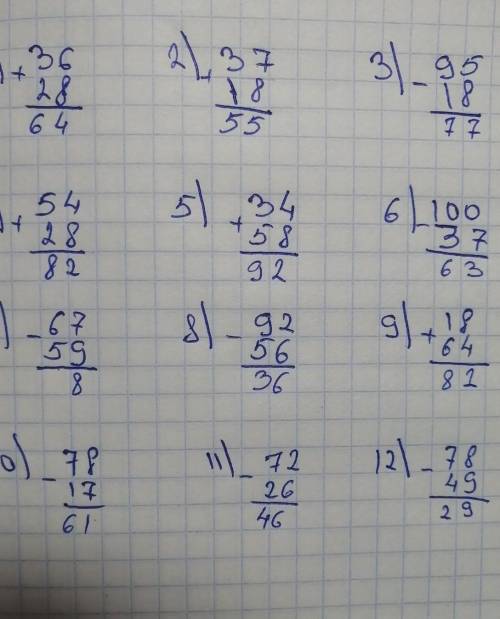 ) + 36 2) + 37 3) - 95
28 18 18
64 55 77
) + 54 5) + 34 6) - 100
28 58 37
82 92 63
) - 67 8) - 92 9) + 18
59 56 64
8 36 82
0) - 78 11) - 72 12) - 78
17 26 49
61 46 29